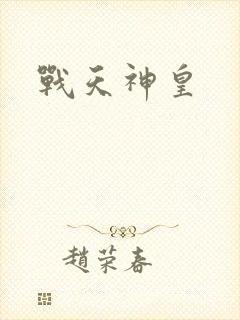 戰天神皇
趙荣春